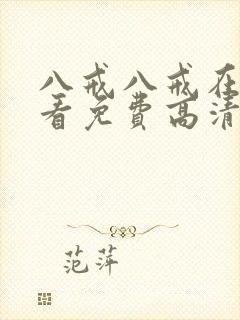 八戒八戒在
看免费高清
范萍